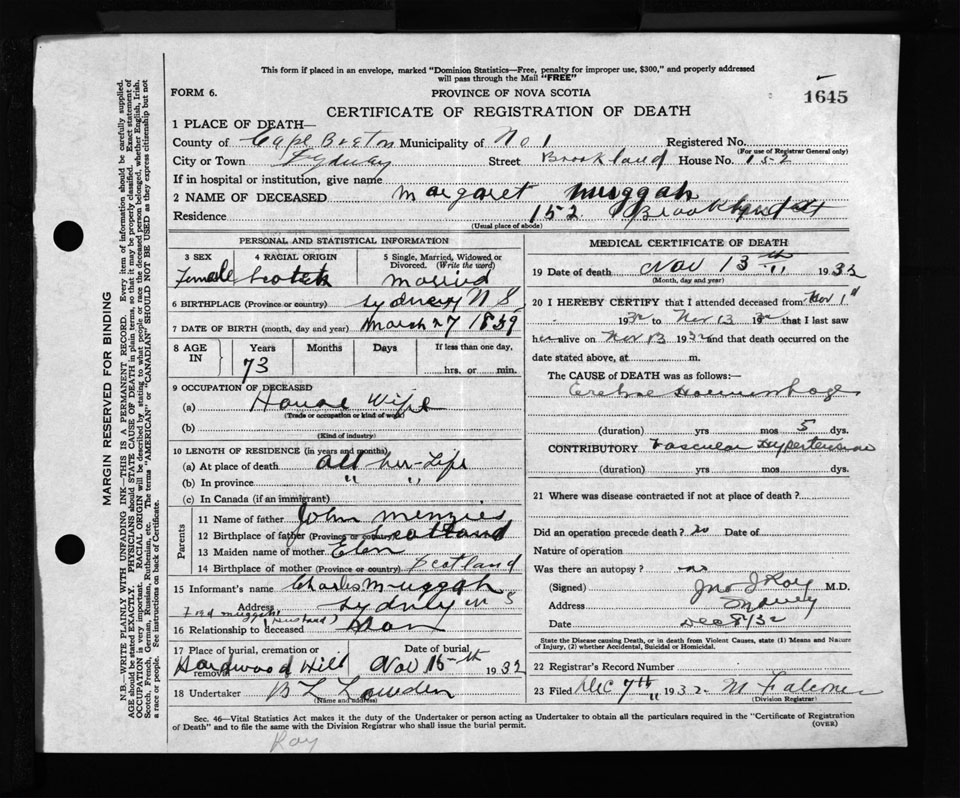 This form if placed in an envelope, marked "Dominion Statistics—Free, penalty for improper use, $300," and properly addressed
will pass through the Mail "FREE"
FORM 6.
PROVINCE OF NOVA SCOTIA
1645
CERTIFICATE OF REGISTRATION OF DEATH
1 PLACE OF DEATH—
County of Cape Breton Municipality of No 1 Registered No.
(For use of Registrar General only)
City or Town Sydney Street Brookland House No. 152
If in hospital or institution, give name
2 NAME OF DECEASED Margaret Muggah
Residence 152 Brookland St
(Usual place of abode)
PERSONAL AND STATISTICAL INFORMATION
3 SEX 4 RACIAL ORIGIN 5 Single, Married, Widowed or
Divorced. (Write the word)
Female Scotch Married
6 BIRTHPLACE (Province or country) Sydney N S
7 DATE OF BIRTH (month, day and year) March 27 1859
8 AGE IN Years Months Days If less than one day,
73 hrs. or min.
9 OCCUPATION OF DECEASED
(a) House Wife
(Trade or occupation or kind of work)
(b)
(Kind of industry)
10 LENGTH OF RESIDENCE (in years and months)
(a) At place of death all her Life
(b) In province " "
(c) In Canada (if an immigrant)
Parents
11 Name of father John Menzies
12 Birthplace of father (Province or country) Scotland
13 Maiden name of mother Elen
14 Birthplace of mother (Province or country) Scotland
15 Informant's name Charles Muggah
Address Sydney N S
Fred Muggah (Husband)
16 Relationship to deceased Son
17 Place of burial, cremation or removal Date of burial
Hardwood Hill Nov 16-th 1932
18 Undertaker B L Lowden
(Name and address)
MEDICAL CERTIFICATE OF DEATH
19 Date of death Nov 13th 1932
(Month, day and year)
20 I HEREBY CERTIFY that I attended deceased from Nov 1st
1932 to Nov 13 1932 that I last saw
her alive on Nov 13 1932 and that death occurred on the
date stated above, at m.
The CAUSE of DEATH was as follows:
Haemorrhage
(duration) yrs mos 5 dys.
CONTRIBUTORY Vascular Hypertension
(duration) yrs mos dys.
21 Where was disease contracted if not at place of death?
Did an operation precede death? no Date of
Nature of operation
Was there an autopsy? no
(Signed) Jno J Roy M.D.
Address Sydney
Date Dec 8/32
State the Disease causing Death, or in death from Violent Causes, state (1) Means and Nature
of Injury, (2) whether Accidental, Suicidal or Homicidal.
22 Registrar's Record Number
23 Filed Dec 7th 1932 M Falconer
(Division Registrar)
Sec. 46—Vital Statistics Act makes it the duty of the Undertaker or person acting as Undertaker to obtain all the particulars required in the "Certificate of Registration
of Death" and to file the same with the Division Registrar who shall issue the burial permit.
(OVER)
Roy
MARGIN RESERVED FOR BINDING
N.B.—WRITE PLAINLY WITH UNFADING INK—THIS IS A PERMANENT RECORD. Every item of information should be carefully supplied.
AGE should be stated EXACTLY. PHYSICIANS should STATE CAUSE OF DEATH in plain terms, so that it may be properly classified. Exact statement of
OCCUPATION is very important. RACIAL ORIGIN will be described by stating to what people or race the deceased person belonged, whether English, Irish,
Scotch, French, German, Russian, Ruthenian, etc. The terms "AMERICAN" or "CANADIAN" SHOULD NOT BE USED as they express citizenship but not
a race or people. See instructions on back of Certificate.